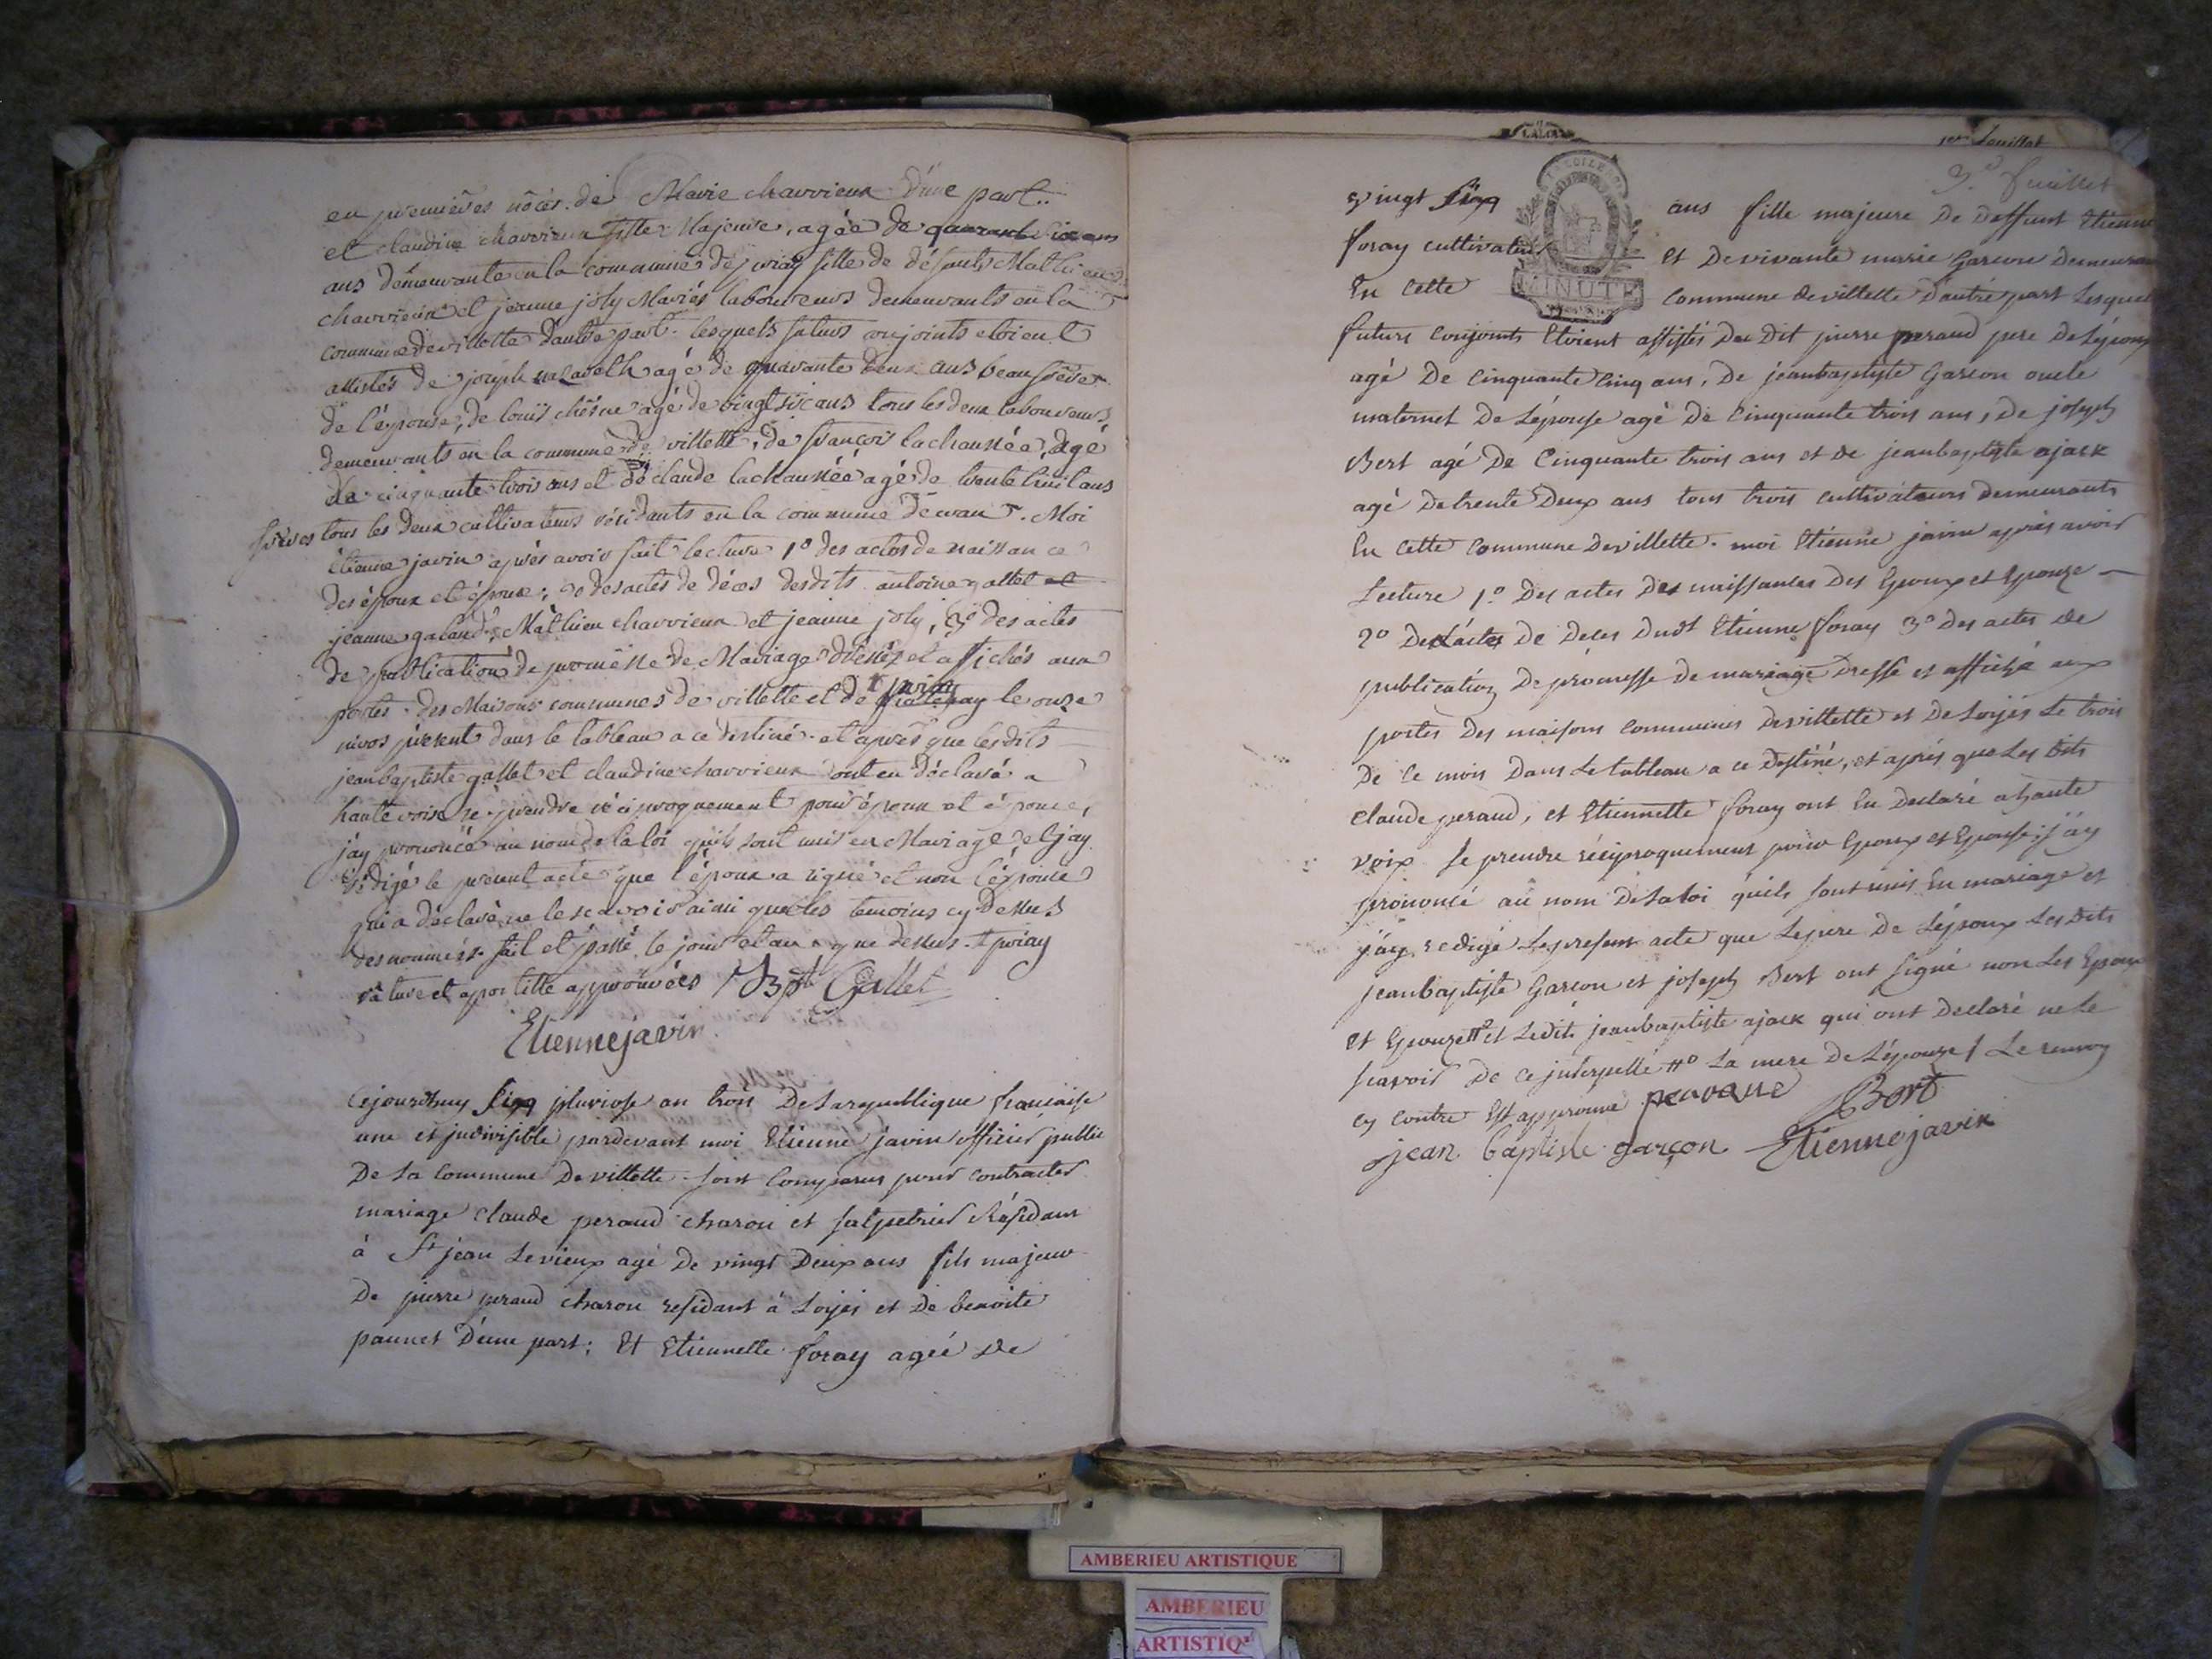 en premières nôces de Marie charvieux d'une part..
et claudine charvieux fille Majeure, agée de quarante six ans
ans demeurante en la commune de priay fille de défunts Mathieu
charvieux et jeanne joly Mariés laboureurs demeurants en la
commune de villette d'autre part. lesquels futurs conjoints etoient
assistés de joseph nazareth agé de quarante deux ans beau frère
de l'épouse, de louis chêne agé de vingt six ans tous les deux laboureurs
demeurants en la commune de villette, de françois lachaussée, agé
de cinquante trois ans et de claude lachaussée agé de trente huit ans
frères tous les deux cultivateurs résidants en la commune de varan. Moi
Etienne javin après avoir fait lecture 1º des actes de naissance
des époux et épouse; 2º des actes de décès desdits antoine gallet et
jeanne galand, Mathieu charvieux et jeanne joly, 3º des actes
de publication de promesse de Mariage dressés et affichés aux
portes des Maisons communes de villette et de priay le onze
nivos présent dans le tableau a ce destiné. et après que lesdits
jeanbaptiste gallet et claudine charvieux ont eu déclaré a
haute voix se prendre réciproquement pour époux et épouse,
j'ay prononcé au nom de la loi qu'ils sont unis en Mariage et j'ay
rédigé le présent acte que l'époux a signé et non l'épouse
qui a déclaré ne le scavoir ainsi que les temoins cy dessus
desnommés. fait et passé le jour et an que dessus. priay
rature et apostille approuvées JBpt Gallet
Etienne javin
Cejourdhuy Cinq pluviose an trois De La republique francaise
une et indivisible pardevant moi Etienne javin officier public
De La Commune De villette sont Comparus pour contracter
mariage claude peraud charon et salpetrier Résidant
à St jean Le vieux agé De vingt Deux ans fils majeur
De pierre peraud charon residant à Loyes et De benoite
paunet D'une part; Et Etiennette foray agée De
1er feuillet
3.e feuillet
vingt Cinq ans fille majeure De deffunt Etienne
foray cultivateur Et De vivante marie Garcon Demeurant
MINUTE
En Cette Commune De villette D'autre part Lesquels
futurs Conjoints Etoient assistés Du Dit pierre peraud pere De Lépoux
agé De Cinquante Cinq ans, De jeanbaptiste Garcon oncle
maternel De Lépouse agé De Cinquante trois ans, De joseph
Bert agé De Cinquante trois ans et De jeanbaptiste ajack
agé De trente Deux ans tous trois cultivateurs Demeurants
En Cette Commune De villette. moi Etienne javin après avoir
Lecture 1º Des actes Des naissances Des Epoux et Epouze
2º De L'acte De Deces Dudt Etienne foray 3º Des actes De
publication De promesse De mariage Dressé et affiché aux
portes Des maisons Communes De villette et De Loyes Le trois
De Ce mois Dans Le tableau a ce Destiné, et après que Les Dits
Claude peraud, et Etiennette foray ont Eu Declaré a haute
voix Se prendre réciproquement pour Epoux et Epouse; j'ay
prononcé au nom De La Loi qu'ils sont unis En mariage et
j'ay redigé Le present acte que Le pere De Lépoux Les Dits
jeanbaptiste Garcon et joseph Bert ont signé non Les Epoux
et Epouze # et Ledit jeanbaptiste ajack qui ont Declaré ne Le
scavoir De ce interpellé # La mere De Lépouze / Le renvoy
cy contre Est approuvé peraud Bert
jean baptiste garçon Etienne javin
AMBERIEU ARTISTIQUE
AMBERIEU
ARTISTIQ